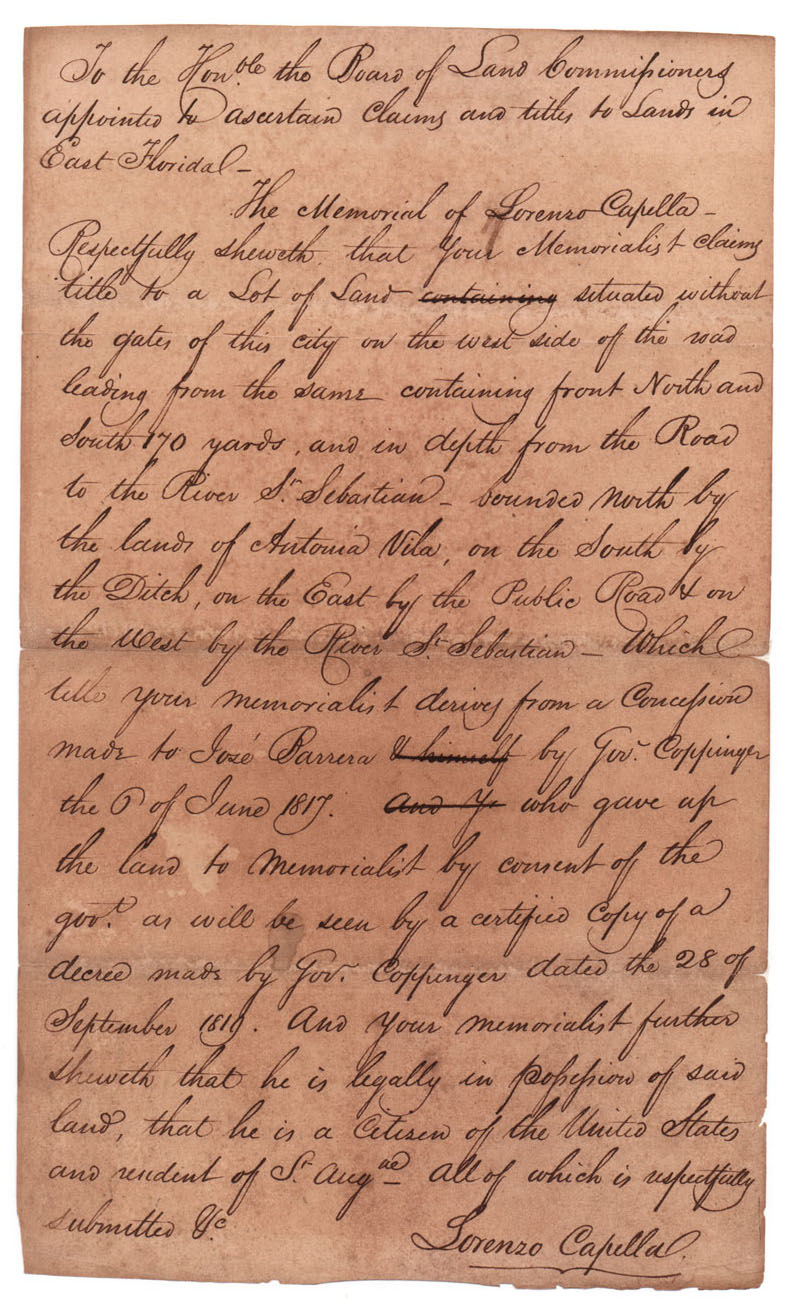 To the Hon.ble the Board of Land Commissioners
appointed to ascertain claims and titles to Lands in
East Florida—
The Memorial of Lorenzo Capella—
Respectfully sheweth, that your Memorialist claims
title to a Lot of Land containing situated without
the gates of this city on the west side of the road
leading from the same containing front North and
South 170 yards, and in depth from the Road
to the River St. Sebastian— bounded north by
the lands of Antonia Vila, on the South by
the Ditch, on the East by the Public Road & on
the West by the River St. Sebastian— Which
title your memorialist derives from a Concession
made to José Barrera & himself by Govr. Coppinger
the 6 of June 1817. And Yr who gave up
the land to Memorialist by consent of the
govt. as will be seen by a certified Copy of a
decree made by Govr. Coppinger dated the 28 of
September 1819. And your memorialist further
sheweth that he is legally in possession of said
land, that he is a Citizen of the United States
and resident of St. Augne— all of which is respectfully
submitted &c
Lorenzo Capella.